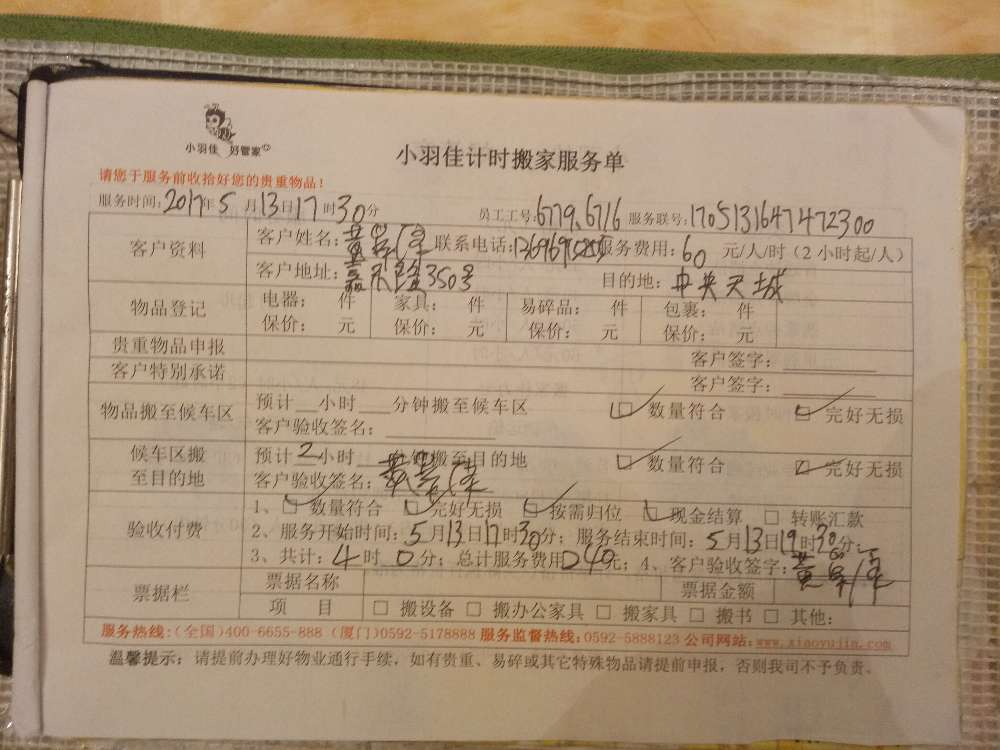 小羽佳 好管家
小羽佳计时搬家服务单
请您于服务前收拾好您的贵重物品！
服务时间：2017年5月13日17时30分 员工工号：6779.6716 服务联号：1705131647472300
客户资料 客户姓名：黄 联系电话： 服务费用：60元/人/时（2小时起/人）
客户地址：嘉禾路350号 目的地：中央天城
物品登记 电器： 件 家具： 件 易碎品： 件 包裹： 件
保价： 元 保价： 元 保价： 元 保价： 元
贵重物品申报 客户签字：
客户特别承诺 客户签字：
物品搬至候车区 预计__小时___分钟搬至候车区 数量符合 完好无损
客户验收签名：
候车区搬至目的地 预计2小时 分钟搬至目的地 数量符合 完好无损
客户验收签名：黄
验收付费 1、数量符合 完好无损 按需归位 现金结算 转账汇款
2、服务开始时间：5月13日17时30分；服务结束时间：5月13日19时30分；
3、共计：4时0分；总计服务费用240元；4、客户验收签字：黄
票据栏 票据名称 票据金额
项 目 搬设备 搬办公家具 搬家具 搬书 其他：
服务热线：(全国)400-6655-888 (厦门)0592-5178888 服务监督热线：0592-5888123 公司网站：www.xiaoyujia.com
温馨提示：请提前办理好物业通行手续，如有贵重、易碎或其它特殊物品请提前申报，否则我司不予负责。